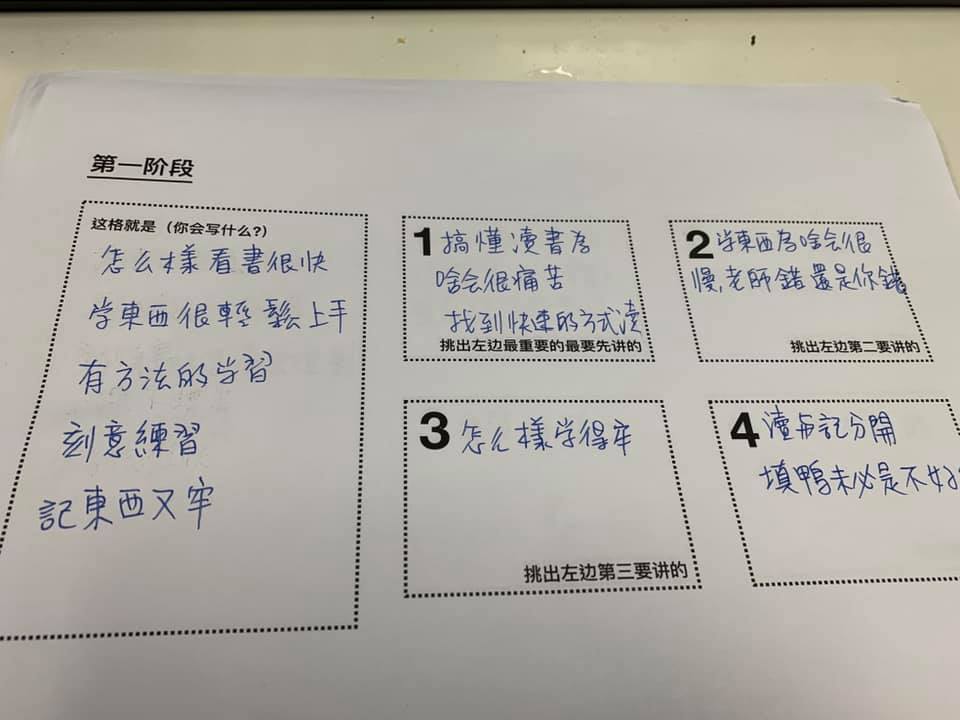 第一阶段
这格就是（你会写什么?）
怎么樣看書很快
学東西很輕鬆上手
有方法的学習
刻意練習
記東西又牢
1 搞懂讀書為
啥会很痛苦
找到快速的方式读
挑出左边最重要的最要先讲的
2 学東西為啥会很
慢,老師錯還是你錯
挑出左边第二要讲的
3 怎么樣学得牢
挑出左边第三要讲的
4 讀与記分開
填鴨未必是不好